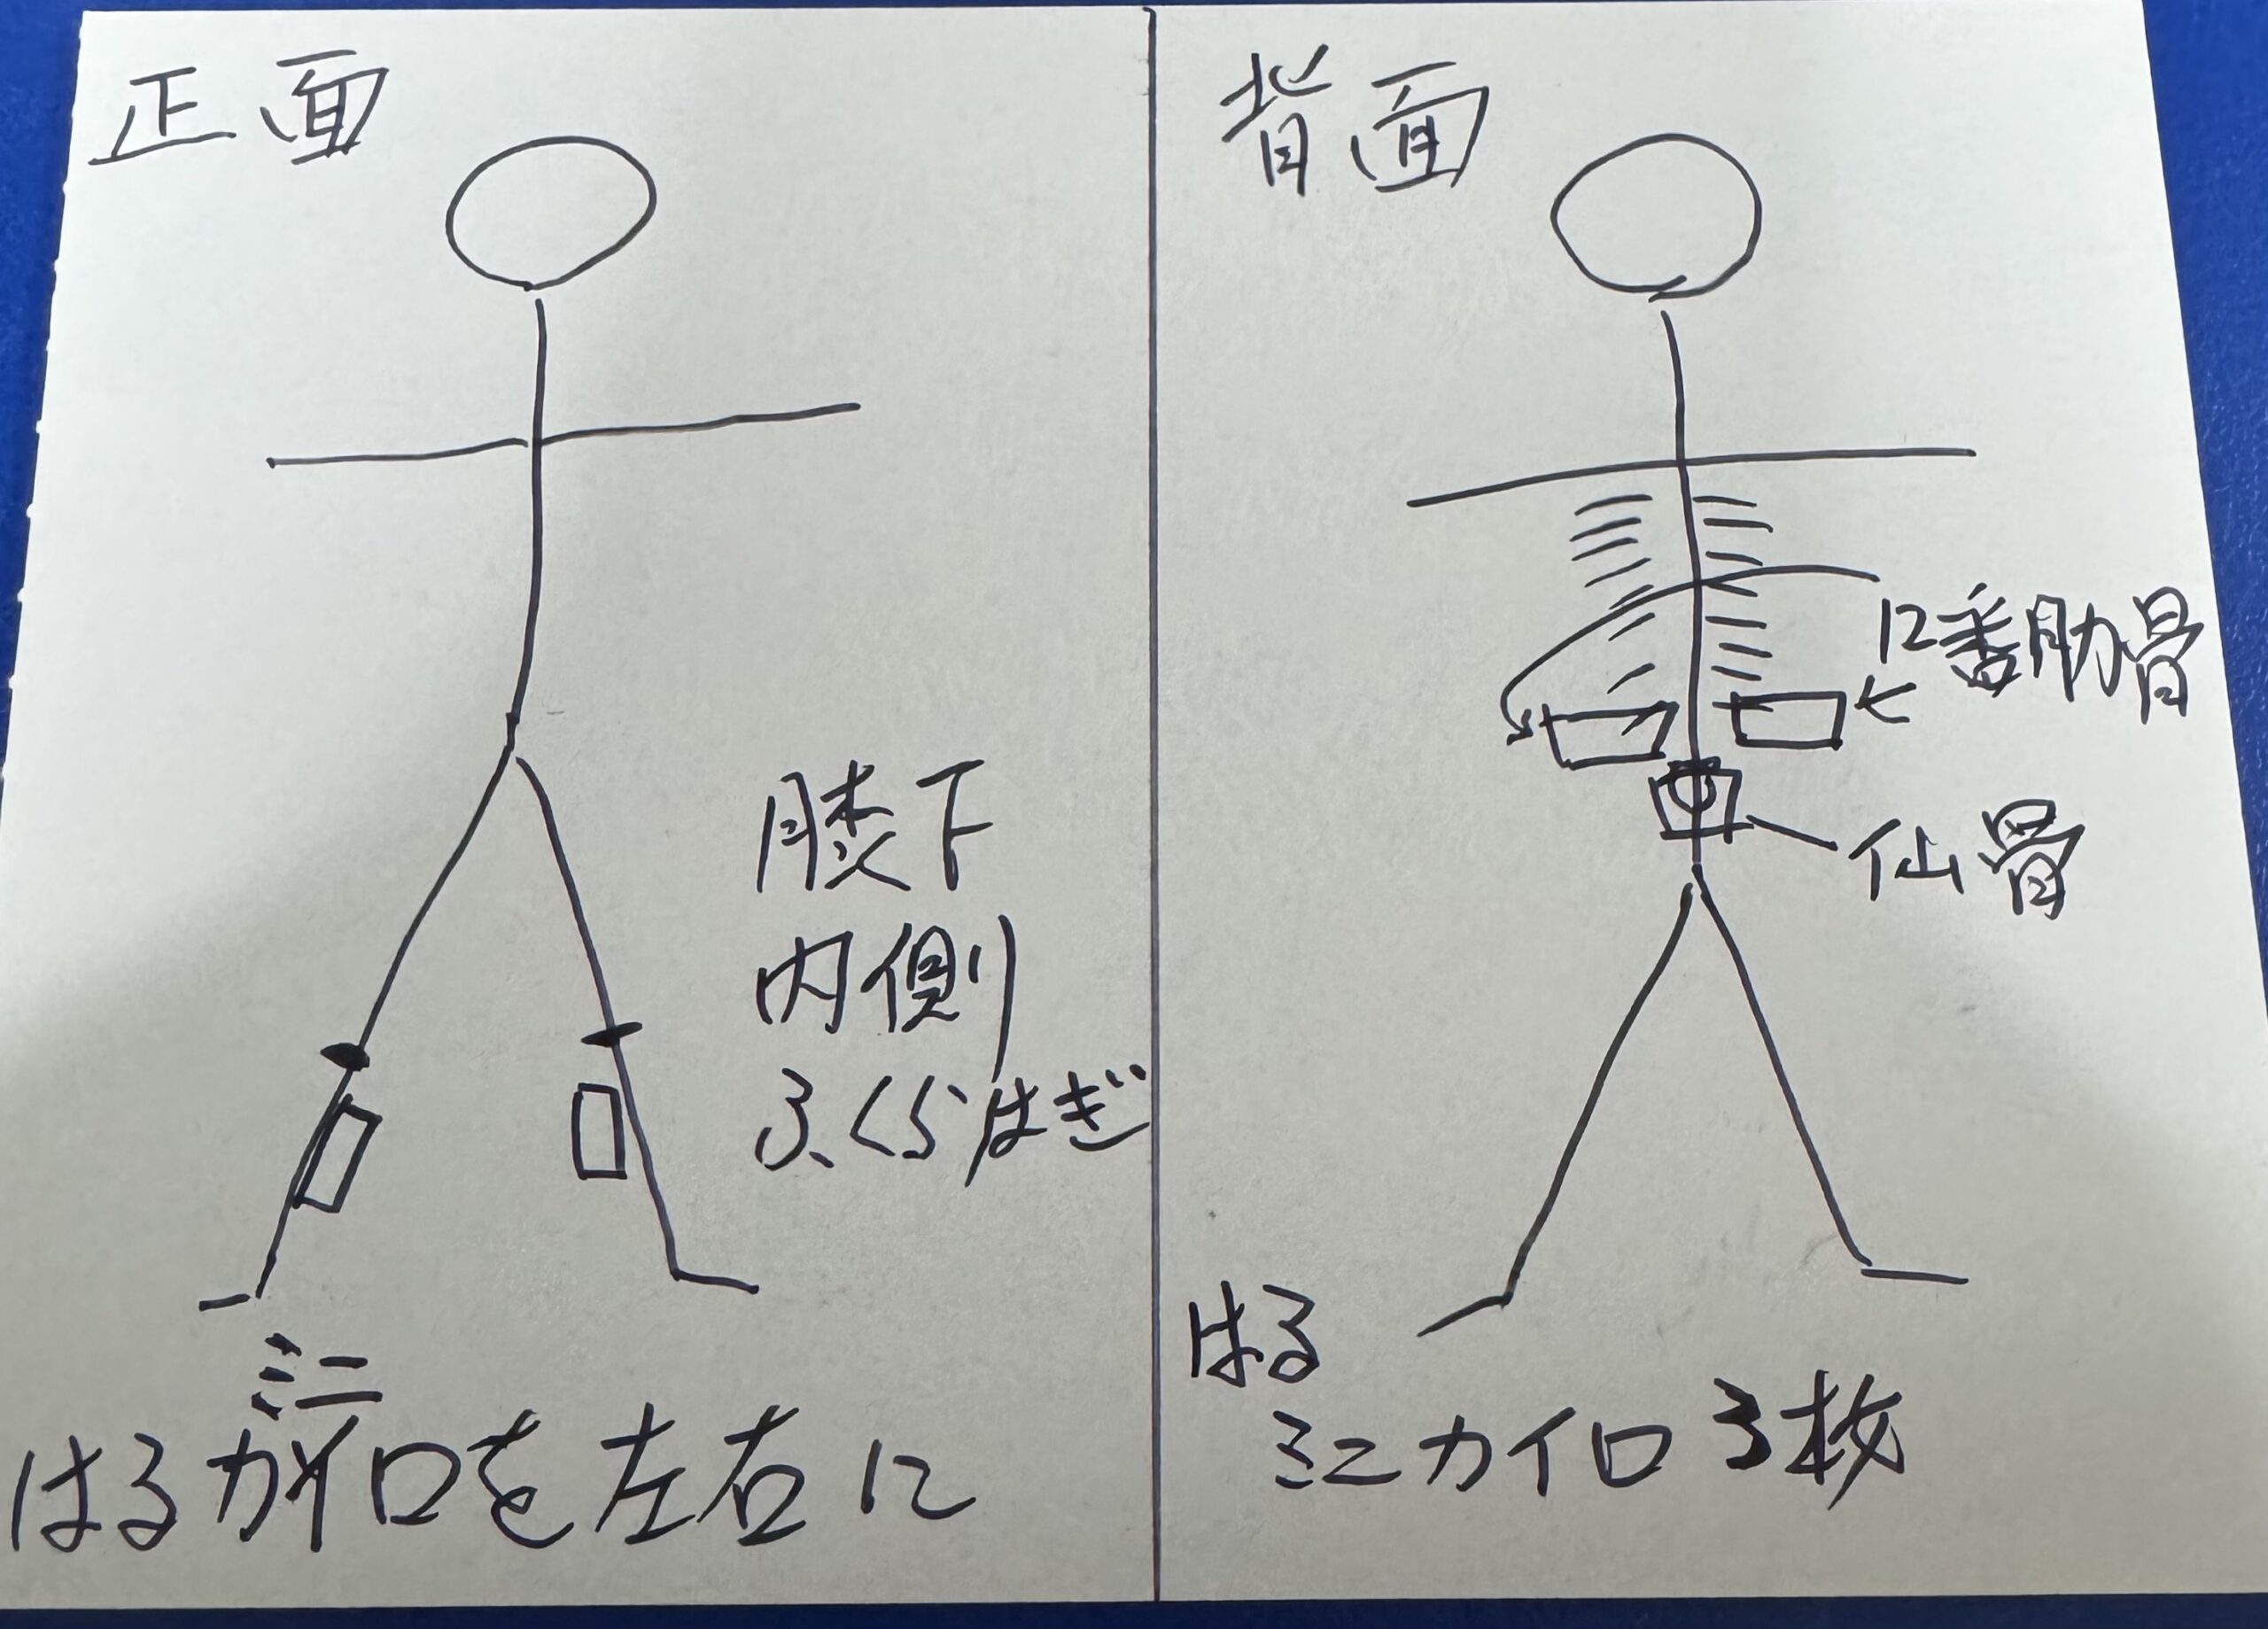 正面
膝下
内側
ふくらはぎ
ミニ
はるカイロを左右に
背面
12番肋骨
仙骨
はる
ミニカイロ3枚